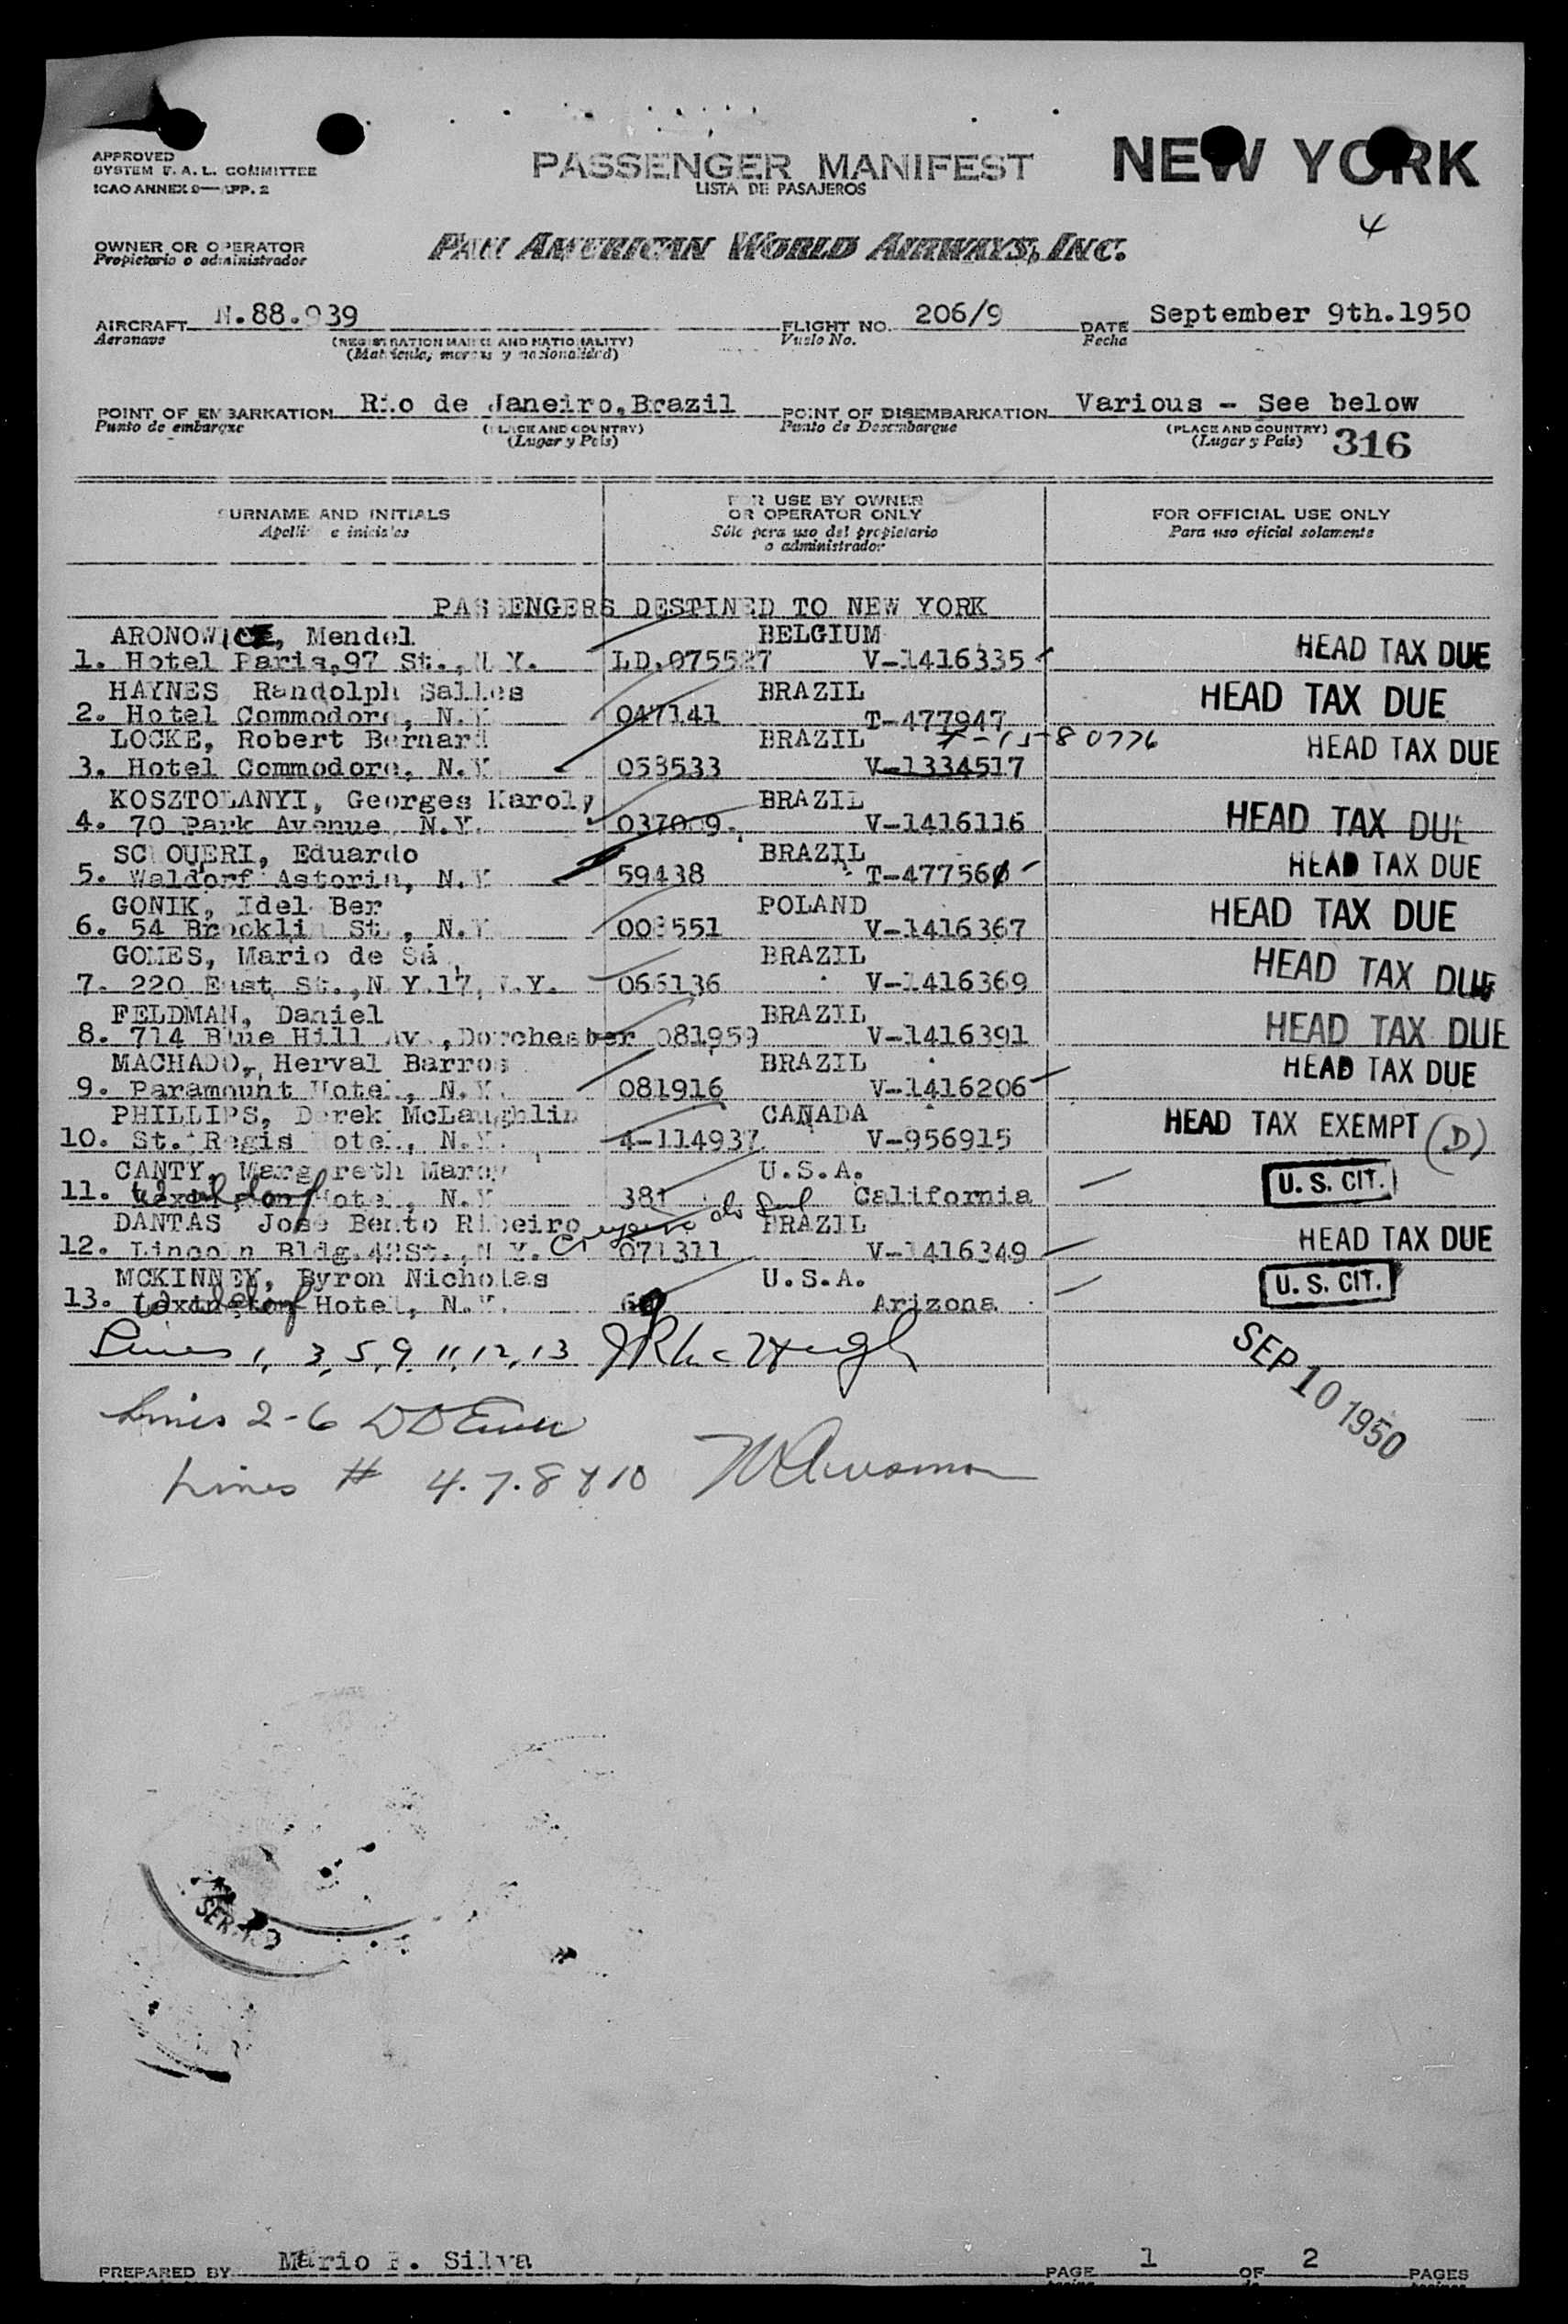 APPROVED
SYSTEM F. A. L. COMMITTEE
ICAO ANNEX 9—APP. 2
PASSENGER MANIFEST
LISTA DE PASAJEROS
NEW YORK
4
OWNER OR OPERATOR
Propietario o administrador
PAN AMERICAN WORLD AIRWAYS, INC.
AIRCRAFT N.88.939
Aeronave
(REGISTRATION MARKS AND NATIONALITY)
(Matrícula, marcas y nacionalidad)
FLIGHT NO. 206/9
Vuelo No.
DATE September 9th.1950
Fecha
POINT OF EMBARKATION Rio de Janeiro,Brazil
Punto de embarque
(PLACE AND COUNTRY)
(Lugar y País)
POINT OF DISEMBARKATION Various - See below
Punto de Desembarque
(PLACE AND COUNTRY)
(Lugar y País)
316
SURNAME AND INITIALS
Apellido e iniciales
FOR USE BY OWNER
OR OPERATOR ONLY
Sólo para uso del propietario
o administrador
FOR OFFICIAL USE ONLY
Para uso oficial solamente
PASSENGERS DESTINED TO NEW YORK
ARONOWICZ, Mendel BELGIUM
1. Hotel Paris,97 St.,N.Y. LD.075527 V-1416335 HEAD TAX DUE
HAYNES, Randolph Salles BRAZIL
2. Hotel Commodore, N.Y. 047141 T-477947 HEAD TAX DUE
LOCKE, Robert Bernard BRAZIL
3. Hotel Commodore, N.Y. 058533 V-1334517 HEAD TAX DUE
KOSZTOLANYI, Georges Karoly BRAZIL
4. 70 Park Avenue, N.Y. 037009 V-1416116 HEAD TAX DUE
Eduardo BRAZIL
5. Waldorf Astoria, N.Y. 59438 T-477560 HEAD TAX DUE
GONIK, Idel Ber POLAND
6. 54 Brocklin St., N.Y. 551 V-1416367 HEAD TAX DUE
GOMES, Mario de Sá BRAZIL
7. 220 East St.,N.Y.17, N.Y. 066136 V-1416369 HEAD TAX DUE
FELDMAN, Daniel BRAZIL
8. 714 Blue Hill Av.,Dorchester 081959 V-1416391 HEAD TAX DUE
MACHADO, Herval Barros BRAZIL
9. Paramount Hotel, N.Y. 081916 V-1416206 HEAD TAX DUE
PHILLIPS, Derek McLaughlin CANADA
10. St. Regis Hotel, N.Y. 4-114937 V-956915 HEAD TAX EXEMPT (D)
CANTY, Margareth Marcy U.S.A.
11. Waldorf Hotel, N.Y. 381 California U. S. CIT.
DANTAS José Bento Ribeiro do Sul BRAZIL
12. Lincoln Bldg.42St.,N.Y. 071311 V-1416349 HEAD TAX DUE
MCKINNEY, Byron Nicholas U.S.A.
13. Lexington Waldorf Hotel, N.Y. Arizona U. S. CIT.
Lines 1, 3, 5, 9, 11, 12, 13
SEP 10 1950
Lines 2-6
Lines # 4. 7. 8 & 10
PREPARED BY Mario F. Silva
PAGE 1 OF 2 PAGES